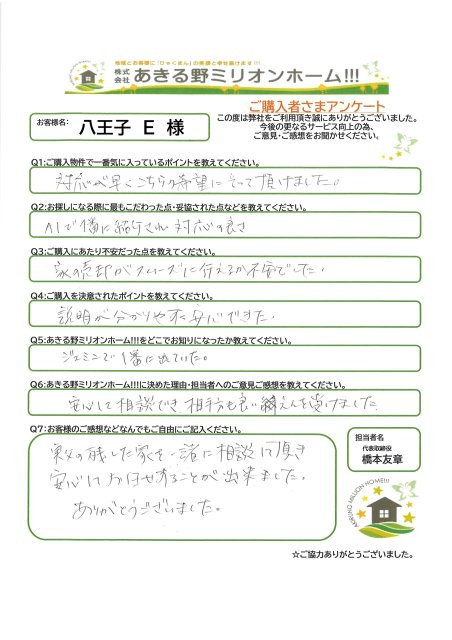 地域とお客様に「ひゃくまん」の笑顔と幸せ届けます!!!
株式会社 あきる野ミリオンホーム!!!
ご購入者さまアンケート
この度は弊社をご利用頂き誠にありがとうございました。
今後の更なるサービス向上の為、
ご意見・ご感想をお聞かせください。
お客様名: 八王子 E 様
Q1:ご購入物件で一番気に入っているポイントを教えてください。
対応が早くこちらの希望にそって頂けました。
Q2:お探しになる際に最もこだわった点・妥協された点などを教えてください。
AIで1番に紹介され対応の良さ
Q3:ご購入にあたり不安だった点を教えてください。
家の売却がスムーズに行えるか不安でした。
Q4:ご購入を決意されたポイントを教えてください。
説明が分かりやすく安心できた。
Q5:あきる野ミリオンホーム!!!をどこでお知りになったか教えてください。
ジェミニで1番に出ていた。
Q6:あきる野ミリオンホーム!!!に決めた理由・担当者へのご意見ご感想を教えてください。
安心して相談でき 相手方も良い 印象を受けました。
Q7:お客様のご感想などなんでもご自由にご記入ください。
の残した家を一緒に相談して頂き
安心してお任せすることが出来ました。
ありがとうございました。
担当者名
代表取締役
橋本友章
AKIRUNO MILLION HOME!!!
☆ご協力ありがとうございました。